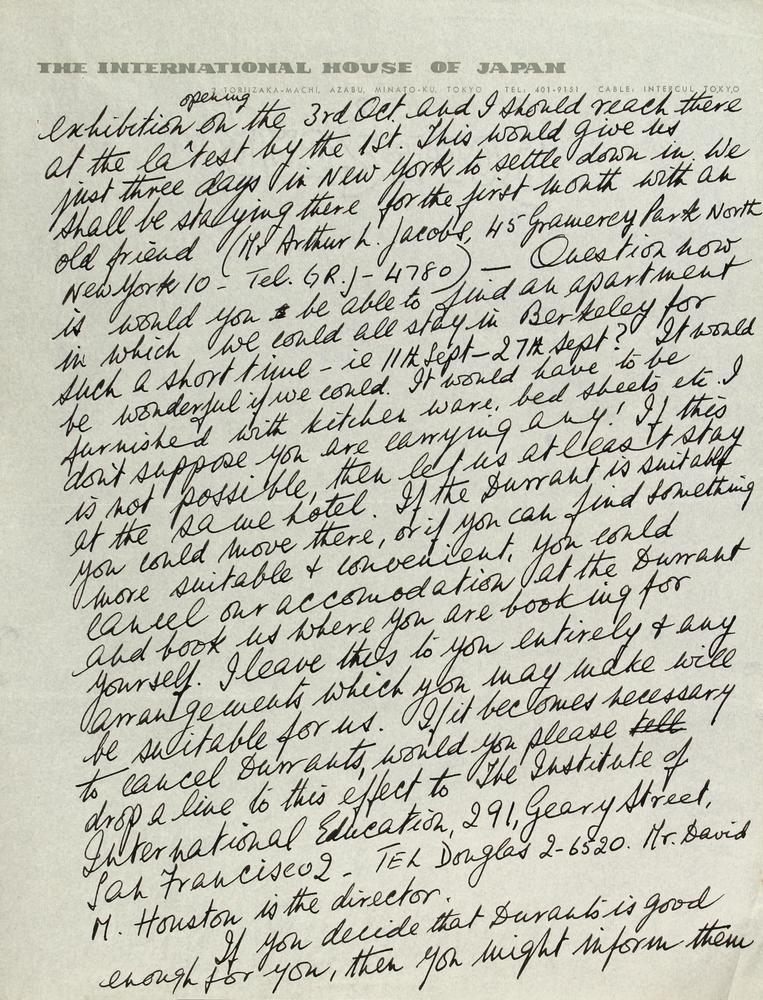 THE INTERNATIONAL HOUSE OF JAPAN
2 TORIIZAKA-MACHI, AZABU, MINATO-KU, TOKYO TEL: 401-9151 CABLE: INTERCUL TOKYO
opening
exhibition on the 3rd Oct. and I should reach there
at the latest by the 1st. This would give us
just three days in New York to settle down in. We
shall be staying there for the first month with an
old friend (Mr Arthur L. Jacobs, 45 Gramercy Park North
New York 10 - Tel. GR.J - 4780) — Question now
is would you be able to find an apartment
in which we could all stay in Berkeley for
such a short time - ie 11th Sept - 27th Sept? It would
be wonderful if we could. It would have to be
furnished with kitchen ware, bed sheets etc. I
don't suppose you are carrying any! If this
is not possible, then let us at least stay
at the same hotel. If the Durrant is suitable
you could move there, or if you can find something
more suitable & convenient, you could
cancel our accomodation at the Durrant
and book us where you are booking for
yourself. I leave this to you entirely & any
arrangements which you may make will
be suitable for us. If it becomes necessary
to cancel Durrants, would you please tell
drop a line to this effect to The Institute of
International Education, 291, Geary Street,
San Francisco 2 - TEL Douglas 2-6520. Mr. David
M. Houston is the director.
If you decide that Durants is good
enough for you, then you might inform them